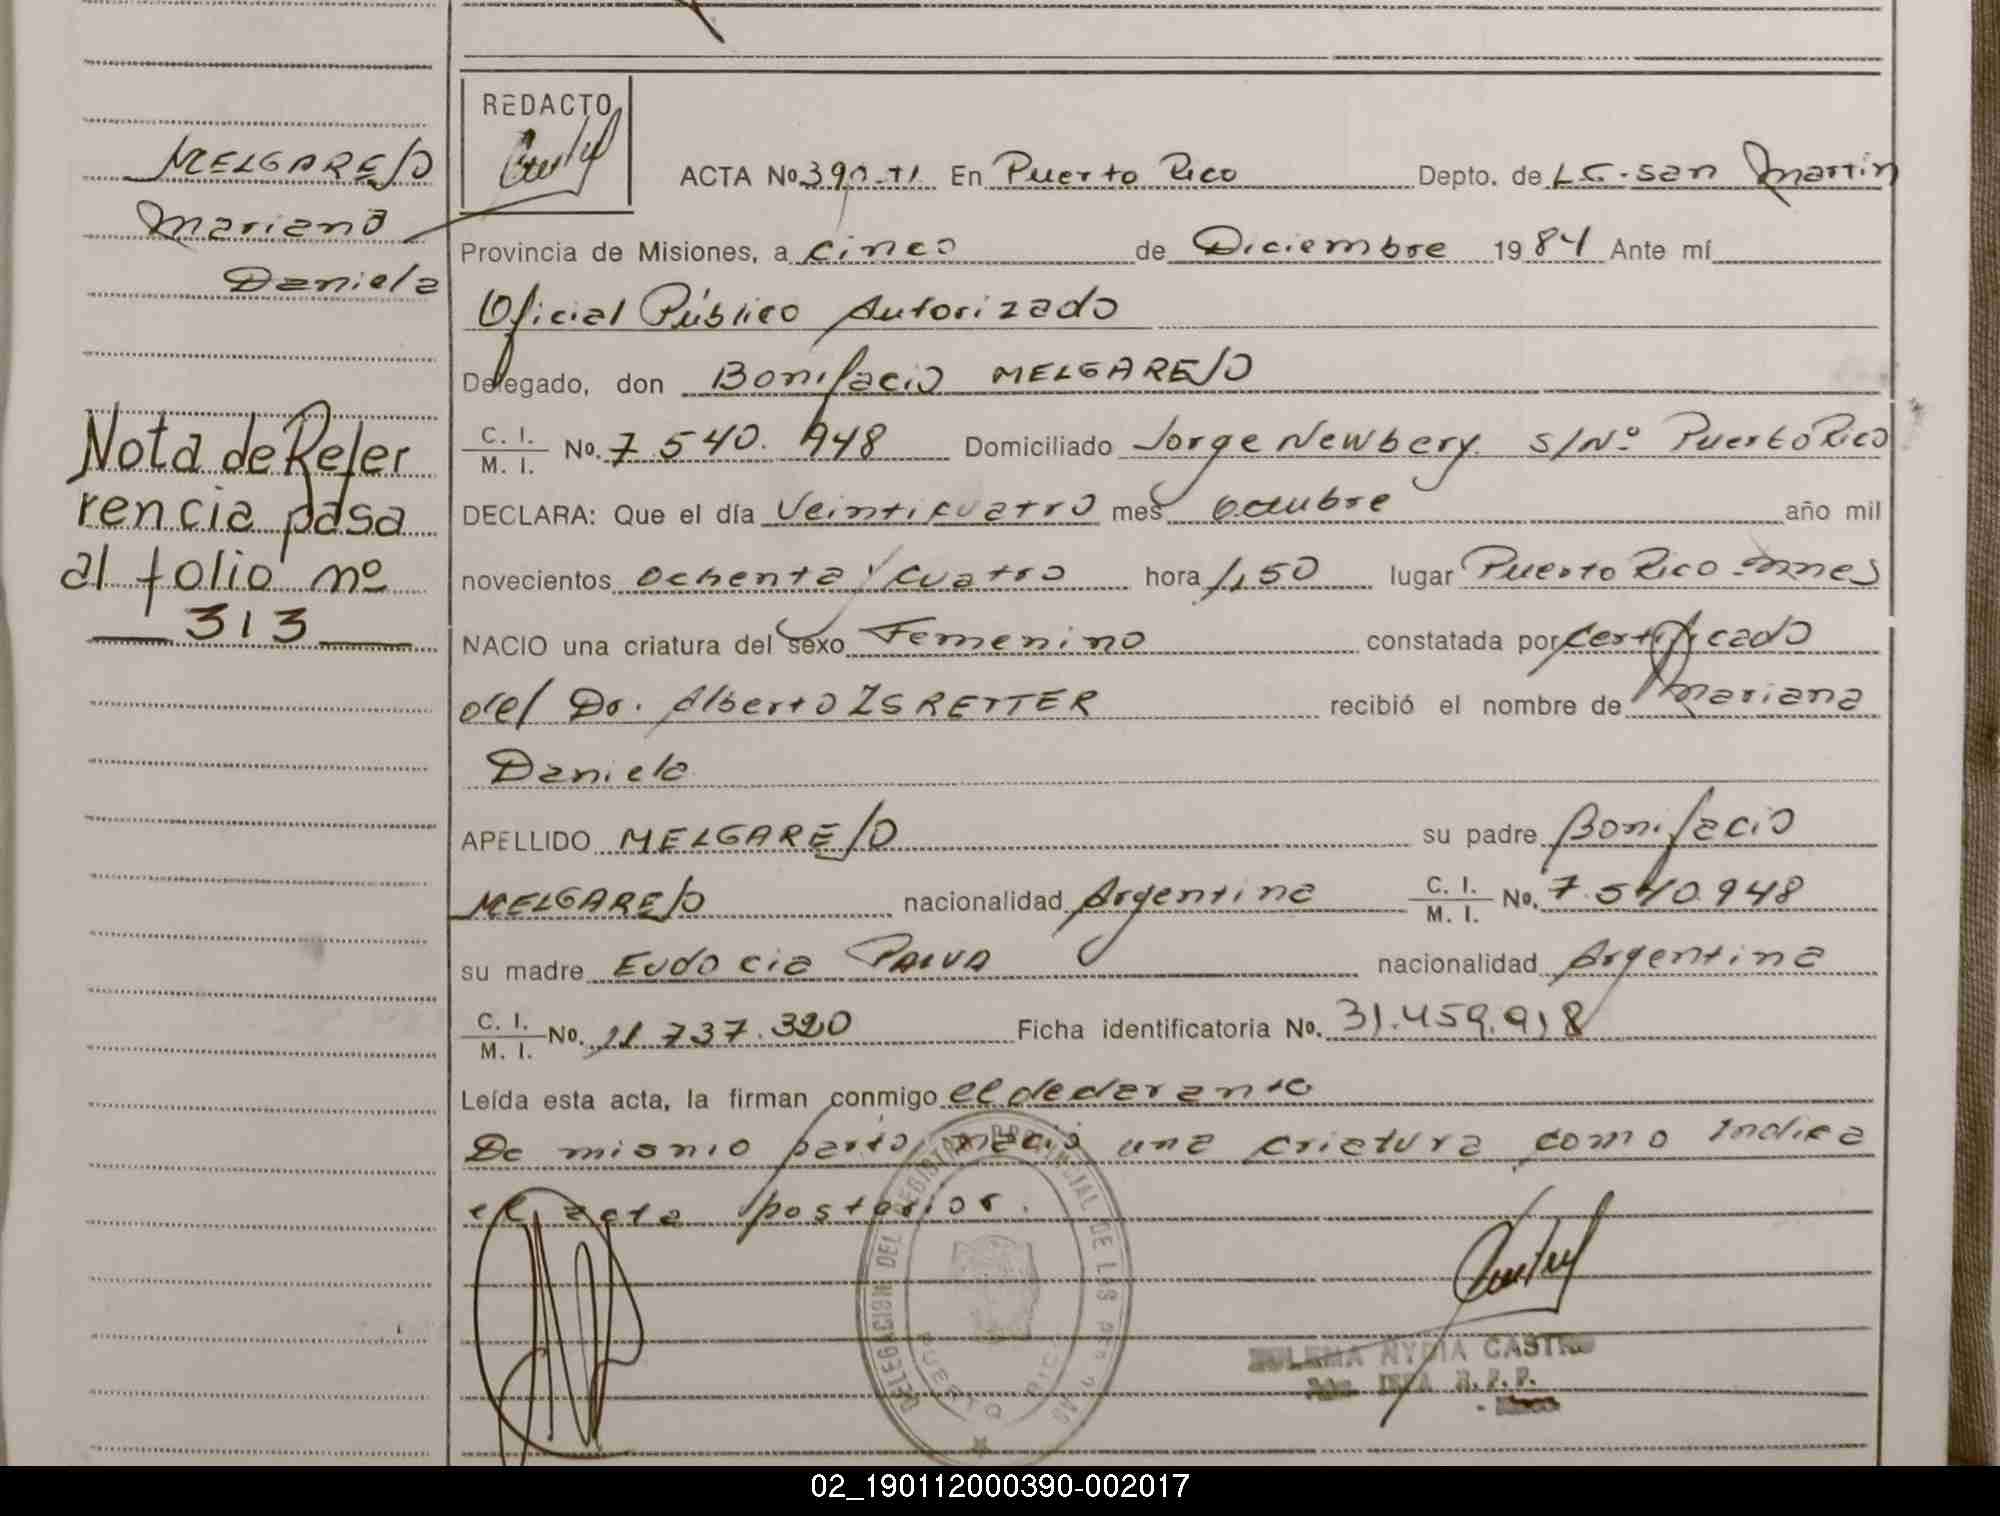 MELGAREJO
Mariana
Daniela
Nota de Refer
rencia pasa
al folio nº
313
REDACTO
ACTA No. 390-TI En Puerto Rico Depto. de L.G. San Martin
Provincia de Misiones, a cinco de Diciembre 1984 Ante mí
Oficial Público Autorizado
Delegado, don Bonifacio MELGAREJO
C. I. / M. I. No. 7.540.948 Domiciliado Jorge Newbery S/Nº Puerto Rico
DECLARA: Que el día Veinticuatro mes Octubre año mil
novecientos ochenta y cuatro hora 1,50 lugar Puerto Rico Mnes
NACIO una criatura del sexo Femenino constatada por Certificado
del Dr. Alberto ISRETTER recibió el nombre de Mariana
Daniela
APELLIDO MELGAREJO su padre Bonifacio
MELGAREJO nacionalidad Argentina C. I. / M. I. No. 7.540.948
su madre Eudocia PAIVA nacionalidad Argentina
C. I. / M. I. No. 11.737.320 Ficha identificatoria No. 31.459.918
Leída esta acta, la firman conmigo el declarante
De mismo parto, nació una criatura como indica
el acta posterior.
DELEGACION DEL REGISTRO PROVINCIAL DE LAS PERSONAS
PUERTO RICO
ZULEMA NYDIA CASTRO
R. P. P.
02_190112000390-002017